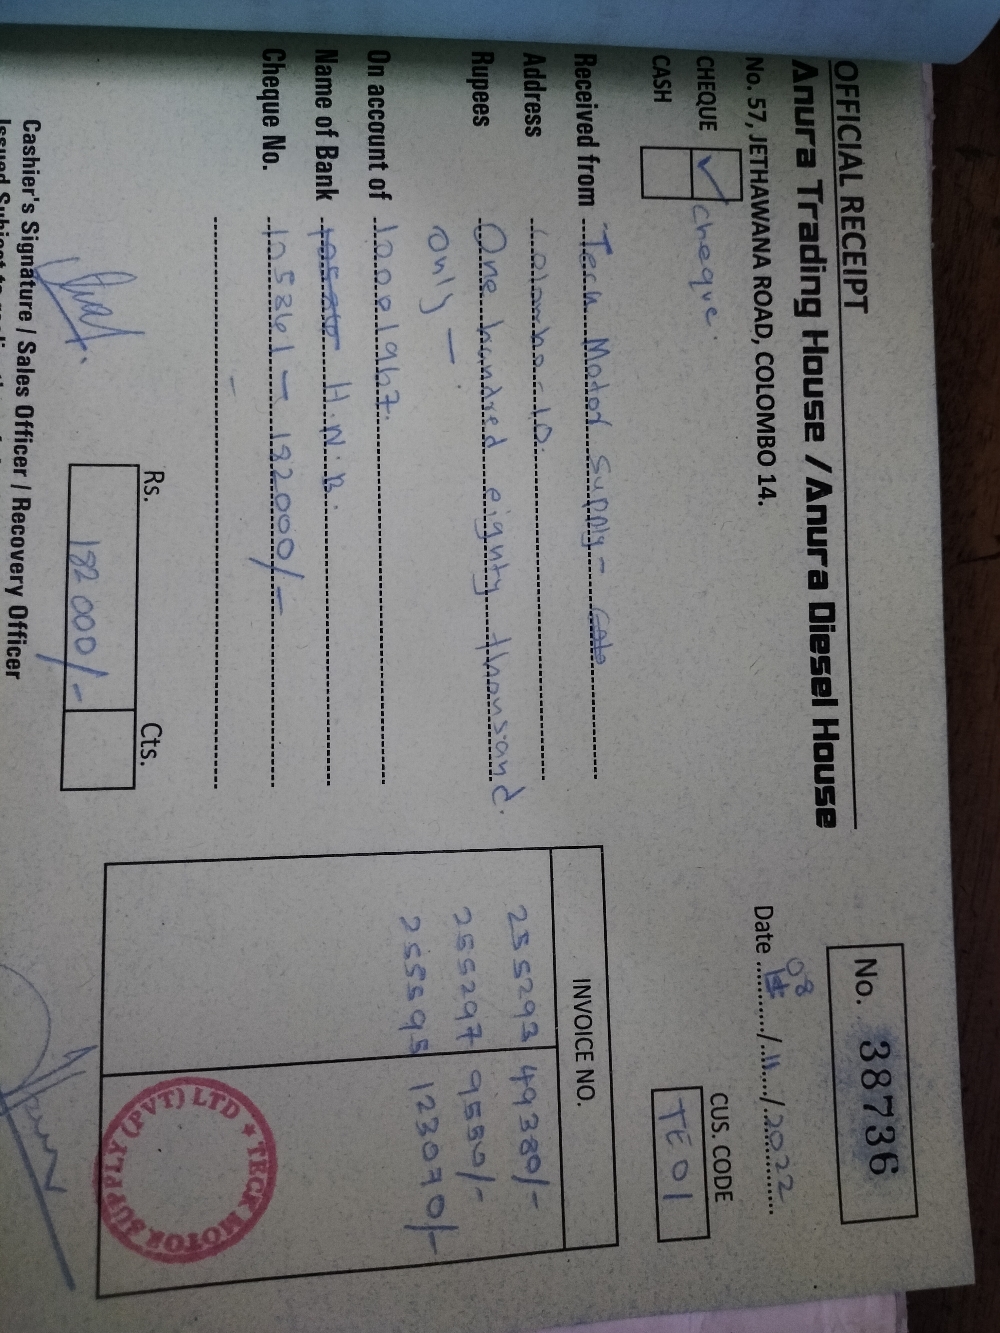 OFFICIAL RECEIPT
Anura Trading House / Anura Diesel House
No. 57, JETHAWANA ROAD, COLOMBO 14.
No. 38736
Date 08/11/2022
CHEQUE ✓ cheque.
CASH
CUS. CODE
TE01
Received from Teck Motor Supply -
Address Colombo - 10.
Rupees One handred eighty thousand
only -
On account of 1000 1967.
Name of Bank H.N.B.
Cheque No. 105361 - 182000/-
INVOICE NO.
255293 49380/-
255297 9550/-
255595 123070/-
Rs. Cts.
182 000/-
TECK MOTOR SUPPLY (PVT) LTD ★
Cashier's Signature / Sales Officer / Recovery Officer